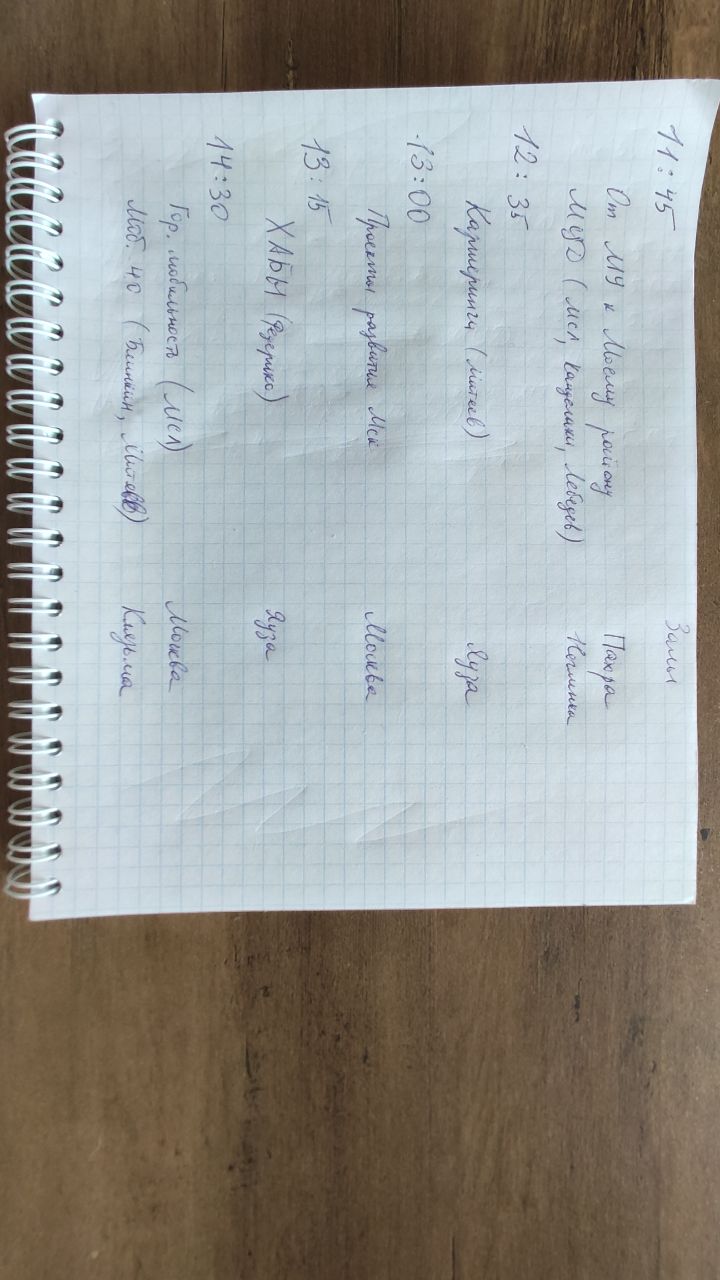 11:45 Залы
От МУ к Моему району Пахра
МЦД (МСЛ, Канделаки, Лебедев) Неглинка
12:35
Каршеринги (Митяев) Яуза
13:00
Проекты развития Мск Москва
13:15
ХАБЫ (Федерико) Яуза
14:30
Гор. мобильность (МСЛ) Москва
Моб. 40 (Блинкин, Митяев) Клязьма